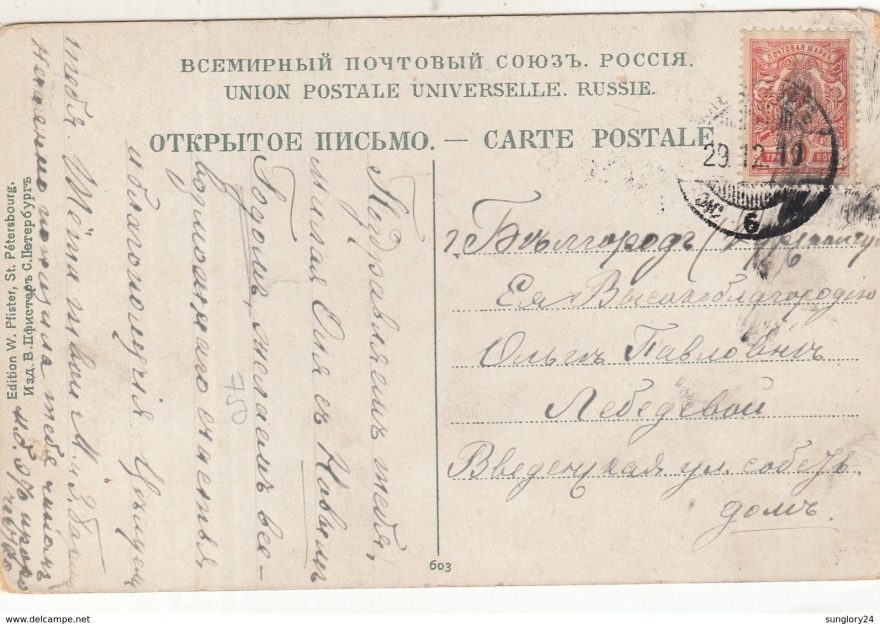 ВСЕМІРНЫЙ ПОЧТОВЫЙ СОЮЗЪ. РОССІЯ.
UNION POSTALE UNIVERSELLE. RUSSIE.
ОТКРЫТОЕ ПИСЬМО. — CARTE POSTALE
ПОЧТОВАЯ МАРКА
29.12.10
6
г. Бѣлгородъ
Ея Высокоблагородію
Ольгѣ Павловнѣ
Лебедевой
Введенская ул. собств.
домъ.
Поздравляемъ тебя,
милая Оля съ Новымъ
Годомъ, желаемъ все-
возможнаго счастья
и благополучія
тебя. Тётя твоя М.
тебя
750
Edition W. Pfister, St. Pétersbourg.
Изд. В. Пфистеръ С. Петербургъ
603
www.delcampe.net
sunglory24